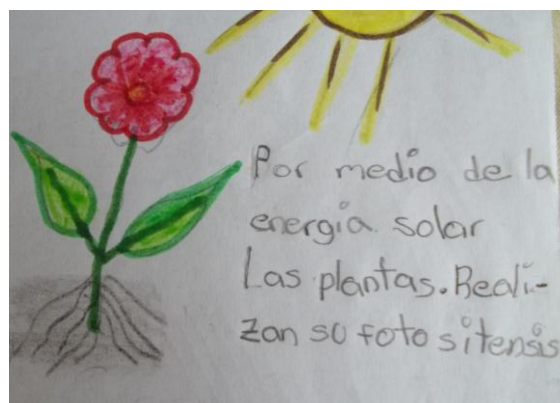 Por medio de la
energía solar
Las plantas. Reali-
zan su foto sitensis